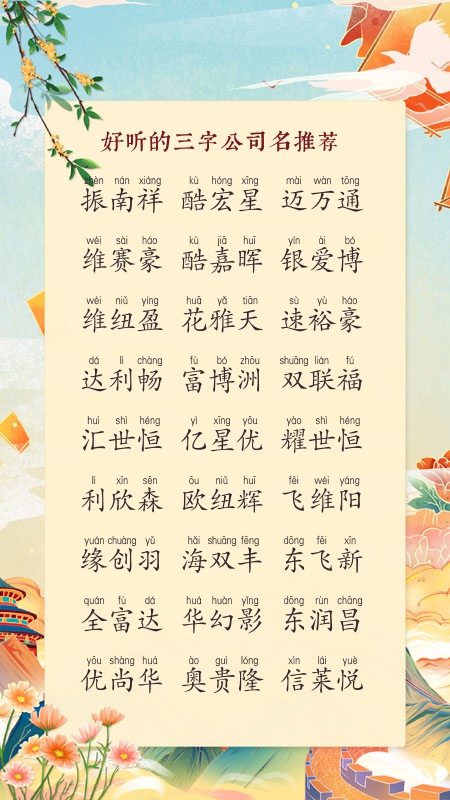 好听的三字公司名推荐
zhèn nán xiáng kù hóng xīng mài wàn tōng
振南祥 酷宏星 迈万通
wéi sài háo kù jiā huī yín ài bó
维赛豪 酷嘉晖 银爱博
wéi niǔ yíng huā yǎ tiān sù yù háo
维纽盈 花雅天 速裕豪
dá lì chàng fù bó zhōu shuāng lián fú
达利畅 富博洲 双联福
huì shì héng yì xīng yōu yào shì héng
汇世恒 亿星优 耀世恒
lì xīn sēn ōu niǔ huī fēi wéi yáng
利欣森 欧纽辉 飞维阳
yuán chuàng yǔ hǎi shuāng fēng dōng fēi xīn
缘创羽 海双丰 东飞新
quán fù dá huá huàn yǐng dōng rùn chāng
全富达 华幻影 东润昌
yōu shàng huá ào guì lóng xìn lái yuè
优尚华 奥贵隆 信莱悦